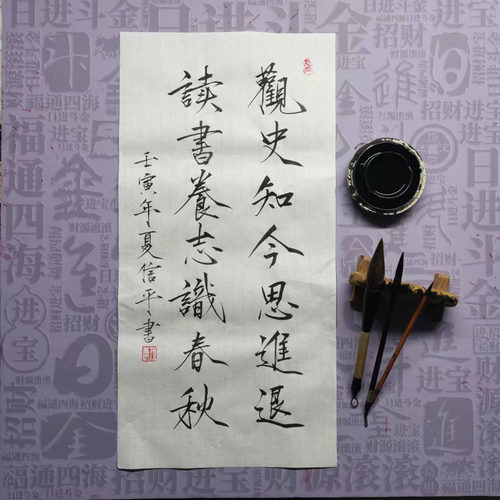 觀史知今思進退
讀書養志識春秋
壬寅年夏信平書
日进斗金
招财进宝
福通四海
财源滚滚